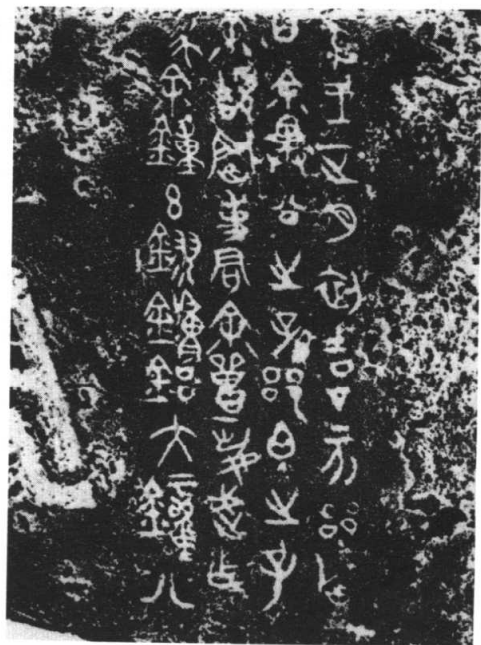 隹王正月初吉丁亥郘
曰余畢公之孫郘白之子
余頡岡事君余嘼丮武乍
為余鐘玄鏐鏞鋁大鐘八